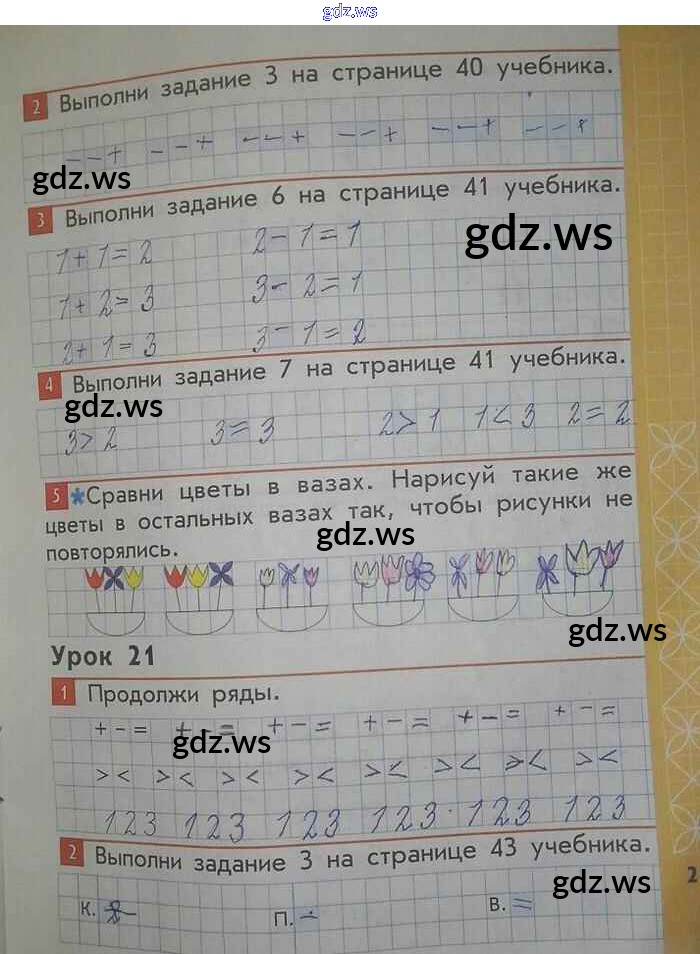 gdz.ws
2 Выполни задание 3 на странице 40 учебника.
- - + - - + - - + - - + - - + - - +
gdz.ws
3 Выполни задание 6 на странице 41 учебника.
1 + 1 = 2 2 - 1 = 1
gdz.ws
1 + 2 = 3 3 - 2 = 1
2 + 1 = 3 3 - 1 = 2
4 Выполни задание 7 на странице 41 учебника.
gdz.ws
3 > 2 3 = 3 2 > 1 1 < 3 2 = 2
5 *Сравни цветы в вазах. Нарисуй такие же
цветы в остальных вазах так, чтобы рисунки не
повторялись.
gdz.ws
gdz.ws
Урок 21
1 Продолжи ряды.
+ - = + - = + - = + - = + - = + - =
gdz.ws
> < > < > < > < > < > < > < > <
1 2 3 1 2 3 1 2 3 1 2 3 1 2 3 1 2 3
2 Выполни задание 3 на странице 43 учебника.
gdz.ws
2
К. П. В. =